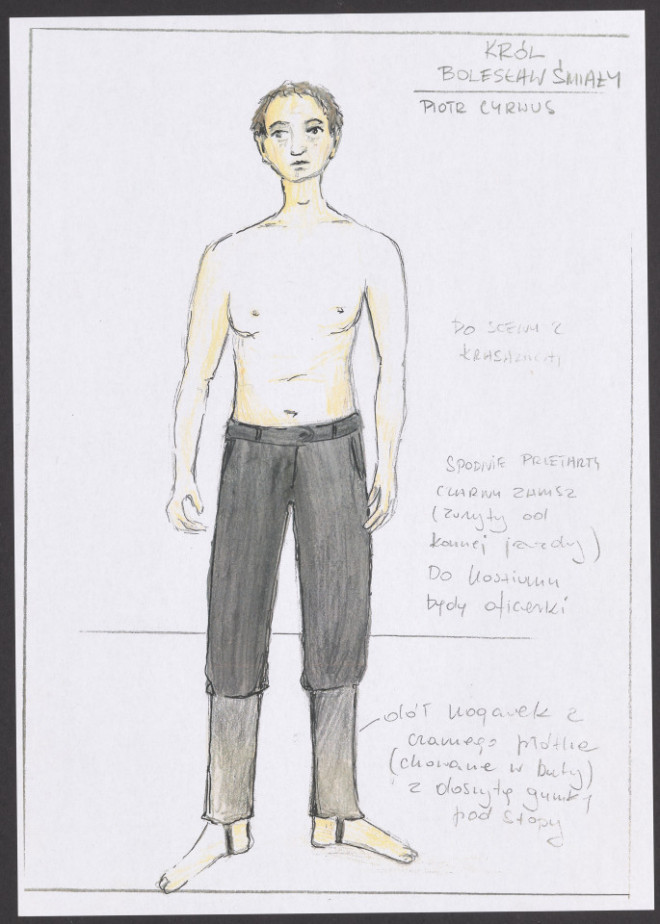 KRÓL
BOLESŁAW ŚMIAŁY
PIOTR CYRWUS
DO SCENY Z
SPODNIE PRZETARTY
CZARNY ZAMSZ
(zużyty od
konnej jazdy)
Do kostiumu
będą oficerki
dół nogawek z
czarnego płótna
(chowane w buty)
z doszytą gumką
pod stopy